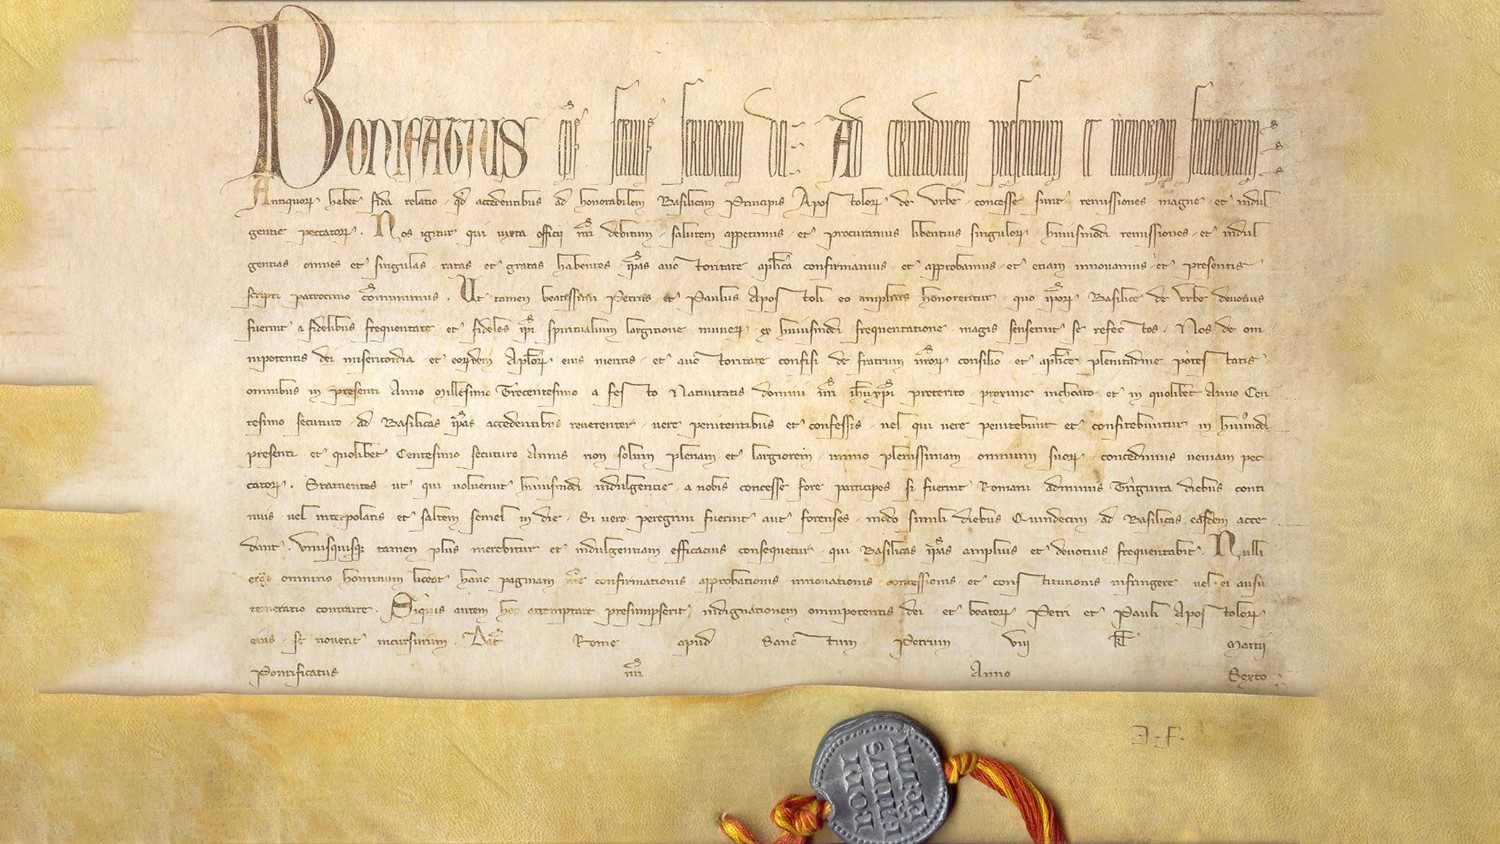 BONIFATIUS ep̄s seruus seruorum dei · Ad certitudinem presentium et memoriam futurorum ·
Antiquoꝝ habet fida relatio · qđ accedentibus ad honorabilem Basilicam Principis Apostoloꝝ de Urbe concesse sunt remissiones magne et indul
gentie peccatoꝝ . Nos igitur qui iuxta officij nr̄i debitum salutem appetimus et procuramus libentius singuloꝝ · huiusmodi remissiones et indul
gentias omnes et singulas · ratas et gratas habentes ip̄as auctoritate aplica confirmamus et approbamus et etiam innouamus et presentis
scripti patrocinio cōmunimus . Ut tamen beatissimi Petrus et Paulus Apostoli eo amplius honorentur · quo ip̄oꝝ Basilice de Urbe deuotius
fuerint a fidelibus frequentate et fideles ip̄i spiritualium largitione muneꝝ ex huiusmodi frequentatione magis senserint se refectos . Nos de om
nipotentis dei misericordia et eoꝝdem Apl̄oꝝ eius meritis et auctoritate confisi de fratrum nr̄oꝝ consilio et aplice plenitudine potestatis
omnibus in presenti Anno Millesimo Trecentesimo a festo Natiuitatis domini nr̄i ih̄u xp̄i preterito proxime inchoato et in quolibet Anno Cen
tesimo secuturo ad Basilicas ip̄as accedentibus reuerenter uere penitentibus et confessis uel qui uere penitebunt et confitebuntur in huiusmōi
presenti et quolibet Centesimo secuturo Annis non solum plenam et largiorem immo plenissimam omnium suoꝝ concedimus ueniam pec
catoꝝ . Statuentes ut qui uoluerint huiusmodi indulgentie a nobis concesse fore participes si fuerint Romani adminus Triginta diebus conti
nuis uel interpolatis et saltem semel in die . Si uero peregrini fuerint aut forenses modo simili diebus Quindecim ad Basilicas easdem acce
dant . Unusquisqꝫ tamen plus merebitur et indulgentiam efficacius consequetur qui Basilicas ip̄as amplius et deuotius frequentabit . Nulli
ergo omnino hominum liceat hanc paginam nr̄e confirmationis approbationis innouationis concessionis et constitutionis infringere uel ei ausu
temerario contraire . Siquis autem hoc attemptare presumpserit indignationem omnipotentis dei et beatoꝝ Petri et Pauli Apostoloꝝ
eius se nouerit incursurum . Dat̄ Rome apud Sanctum Petrum viij kl̄ Martij
Pontificatus nr̄i Anno Sexto